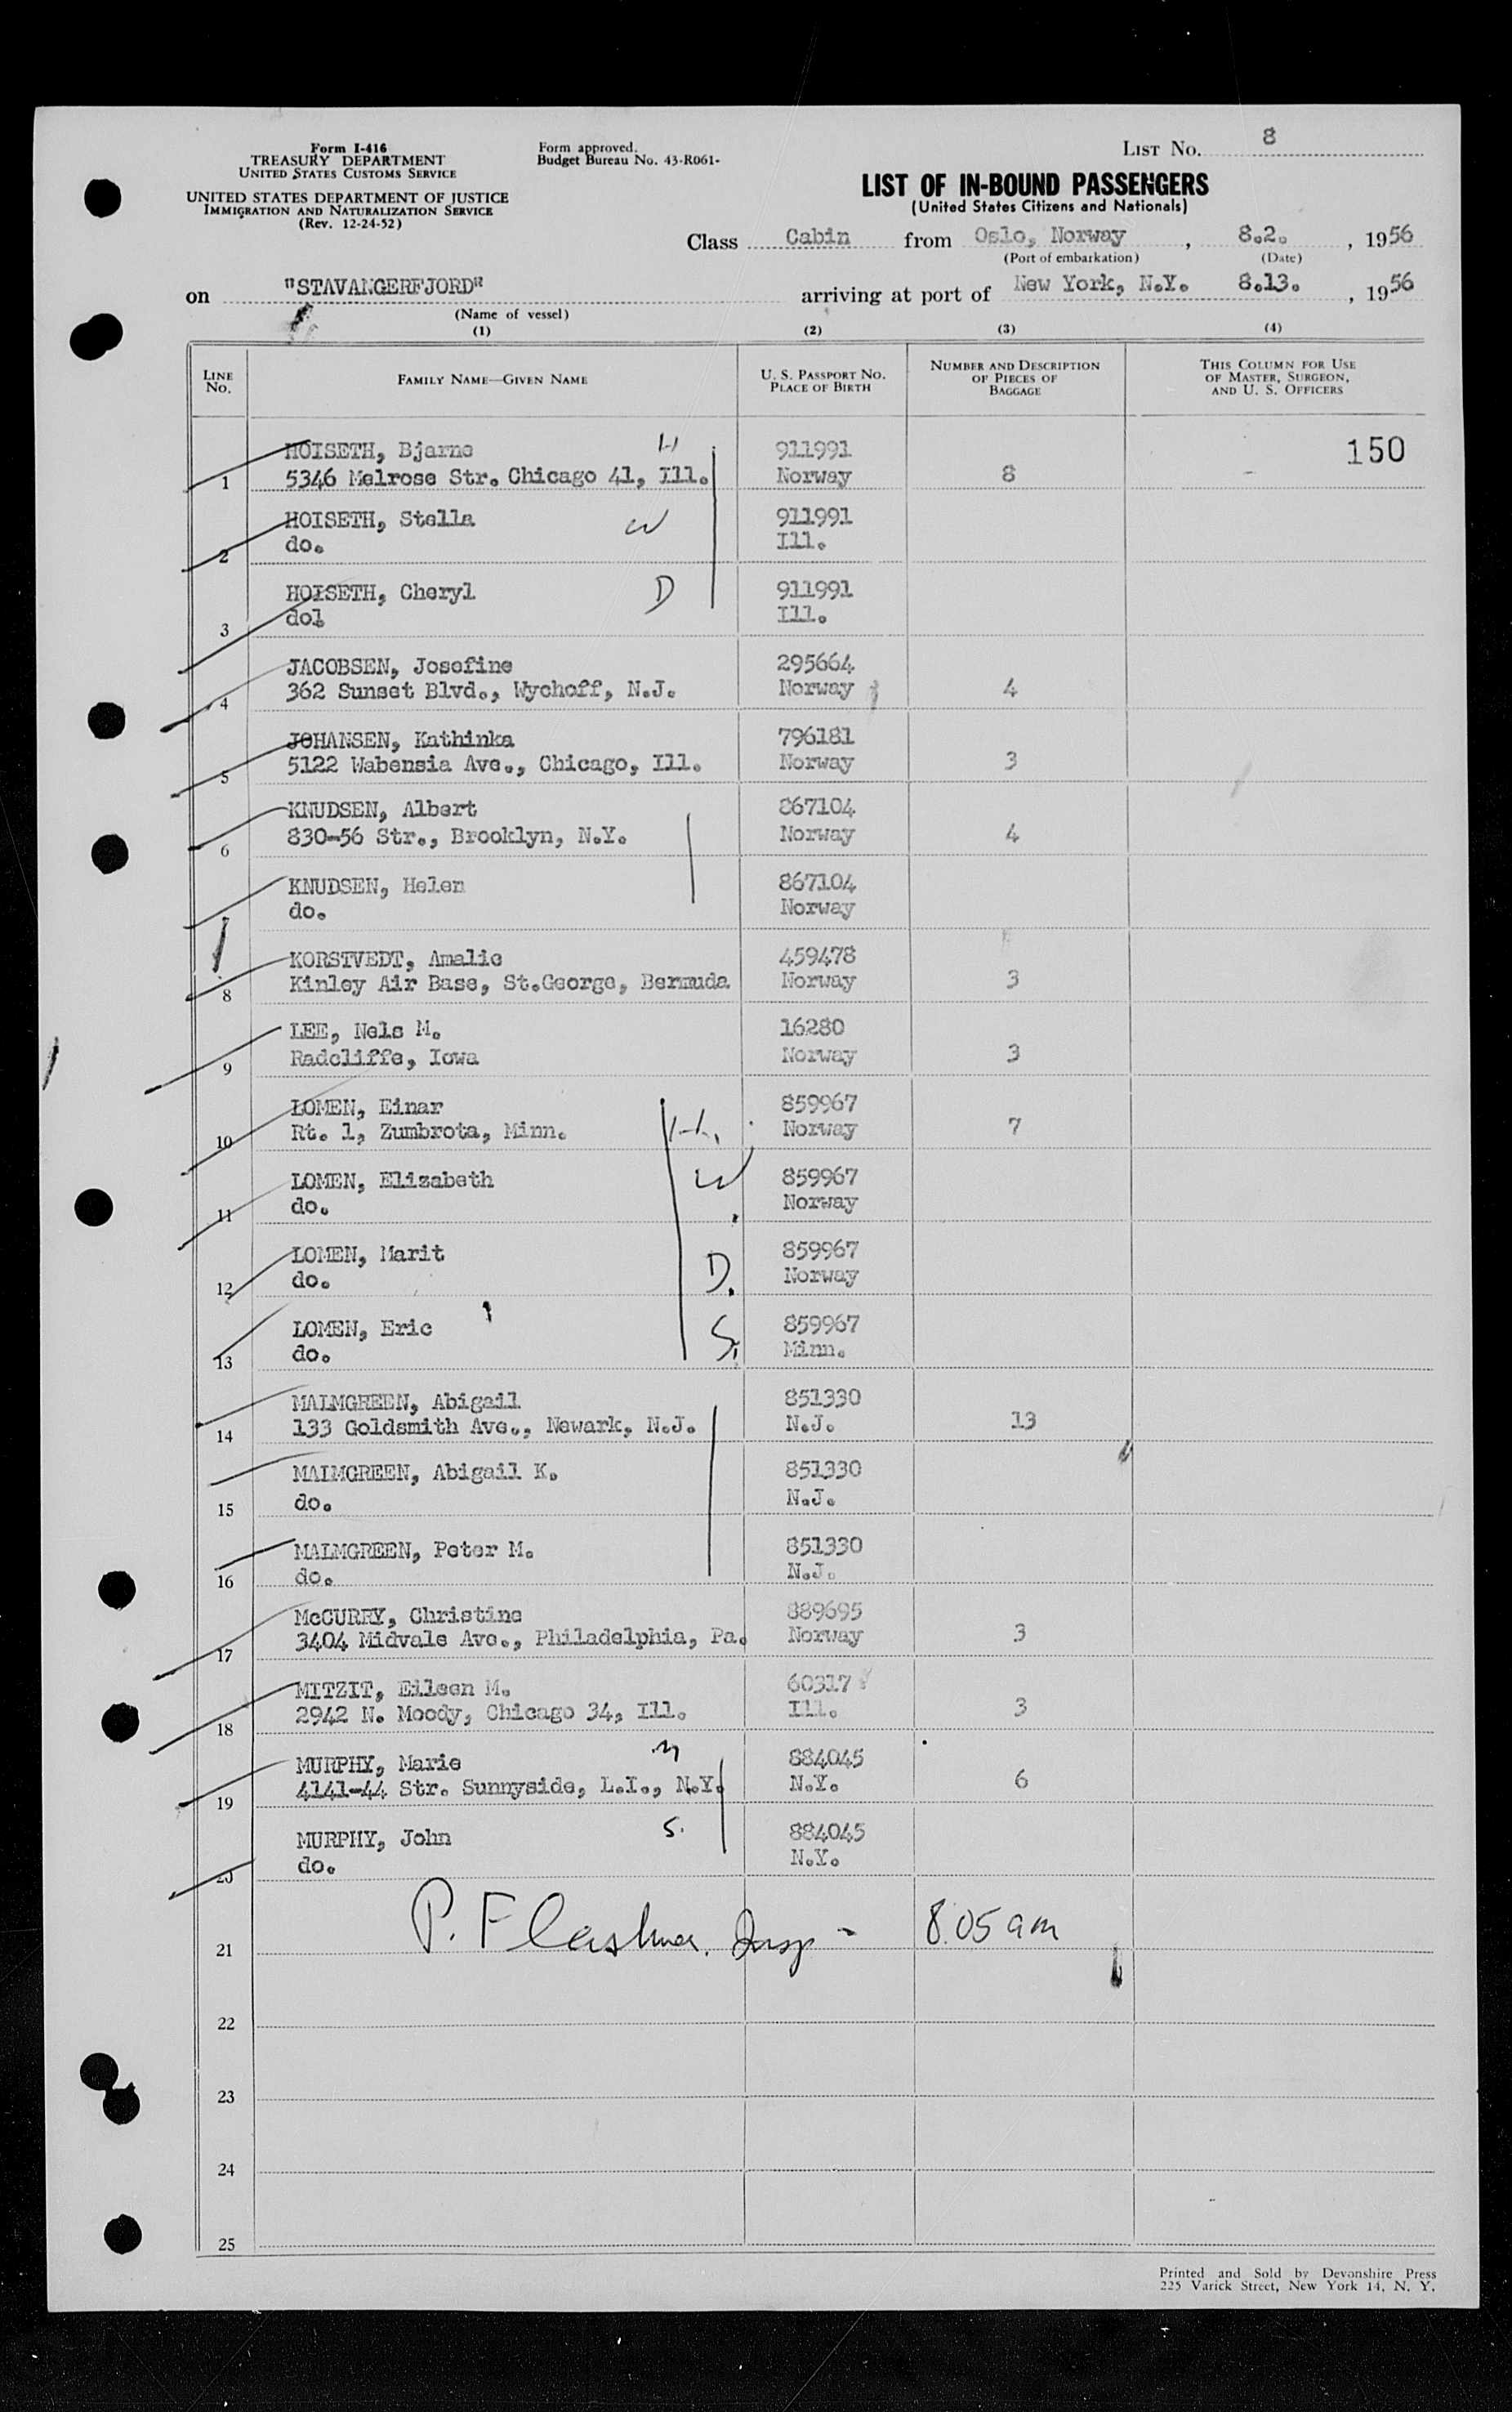 Form I-416
TREASURY DEPARTMENT
UNITED STATES CUSTOMS SERVICE
UNITED STATES DEPARTMENT OF JUSTICE
IMMIGRATION AND NATURALIZATION SERVICE
(Rev. 12-24-52)
Form approved.
Budget Bureau No. 43-R061-
LIST No. 8
LIST OF IN-BOUND PASSENGERS
(United States Citizens and Nationals)
Class Cabin from Oslo, Norway, 8.2., 1956
(Port of embarkation) (Date)
on "STAVANGERFJORD" arriving at port of New York, N.Y. 8.13., 1956
(Name of vessel)
(1) (2) (3) (4)
LINE No. FAMILY NAME—GIVEN NAME U. S. PASSPORT NO. PLACE OF BIRTH NUMBER AND DESCRIPTION OF PIECES OF BAGGAGE THIS COLUMN FOR USE OF MASTER, SURGEON, AND U. S. OFFICERS
HOISETH, Bjarne H 911991 150
1 5346 Melrose Str. Chicago 41, Ill. Norway 8
HOISETH, Stella W 911991
2 do. Ill.
HOISETH, Cheryl D 911991
3 dol Ill.
JACOBSEN, Josefine 295664
4 362 Sunset Blvd., Wychoff, N.J. Norway 4
JOHANSEN, Kathinka 796181
5 5122 Wabensia Ave., Chicago, Ill. Norway 3
KNUDSEN, Albert 867104
6 830-56 Str., Brooklyn, N.Y. Norway 4
KNUDSEN, Helen 867104
do. Norway
KORSTVEDT, Amalie 459478
8 Kinley Air Base, St.George, Bermuda Norway 3
LEE, Nels M. 16280
9 Radcliffe, Iowa Norway 3
LOMEN, Einar 859967
10 Rt. 1, Zumbrota, Minn. H. Norway 7
LOMEN, Elizabeth W 859967
11 do. Norway
LOMEN, Marit 859967
12 do. D. Norway
LOMEN, Eric 859967
13 do. S. Minn.
MALMGREEN, Abigail 851330
14 133 Goldsmith Ave., Newark, N.J. N.J. 13
MALMGREEN, Abigail K. 851330
15 do. N.J.
MALMGREEN, Peter M. 851330
16 do. N.J.
McCURRY, Christine 889695
17 3404 Midvale Ave., Philadelphia, Pa. Norway 3
MITZIT, Eileen M. 60317
18 2942 N. Moody, Chicago 34, Ill. Ill. 3
MURPHY, Marie M 884045
19 4141-44 Str. Sunnyside, L.I., N.Y. N.Y. 6
MURPHY, John S. 884045
20 do. N.Y.
21 P. Insp - 8.05 am
22
23
24
25
Printed and Sold by Devonshire Press
225 Varick Street, New York 14, N. Y.